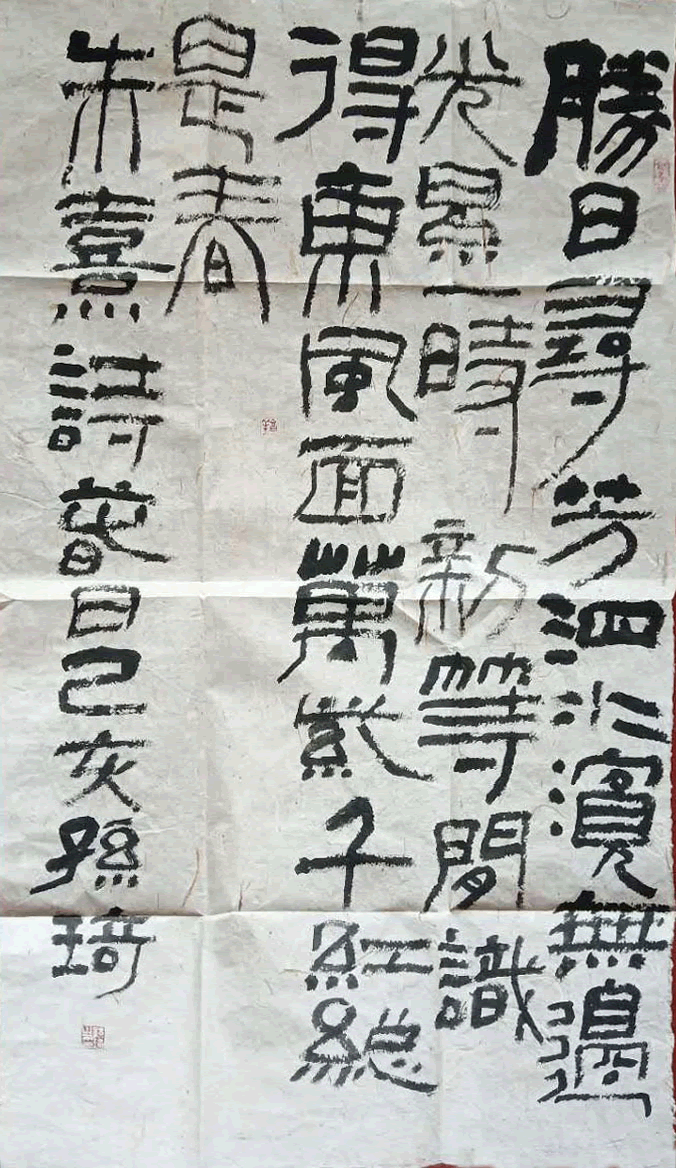 勝日尋芳泗水濱無邊
光景一時新等閒識
得東風面萬紫千紅總
是春
朱熹詩春日己亥孫琦